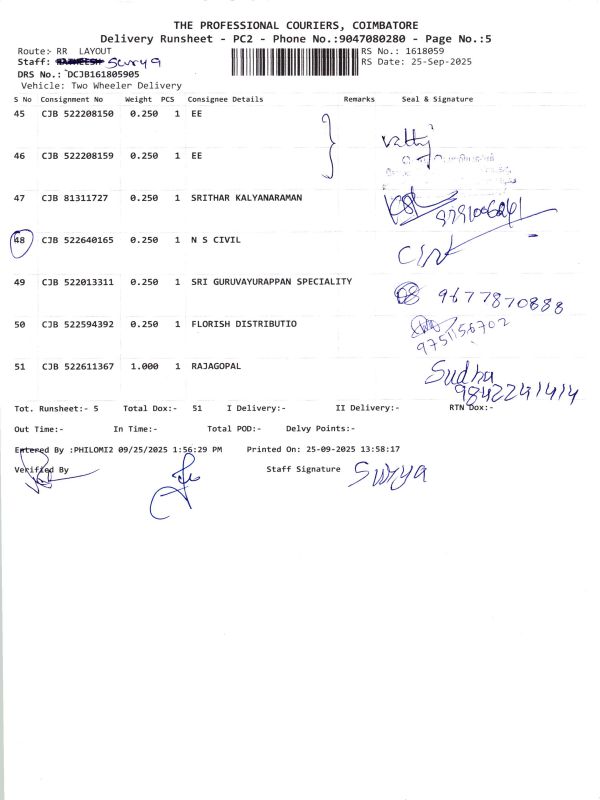 THE PROFESSIONAL COURIERS, COIMBATORE
Delivery Runsheet - PC2 - Phone No.:9047080280 - Page No.:5
Route:- RR LAYOUT
RS No.: 1618059
Staff: Surya
RS Date: 25-Sep-2025
DRS No.: DCJB161805905
Vehicle: Two Wheeler Delivery
S No Consignment No Weight PCS Consignee Details Remarks Seal & Signature
45 CJB 522208150 0.250 1 EE
46 CJB 522208159 0.250 1 EE
47 CJB 81311727 0.250 1 SRITHAR KALYANARAMAN
48 CJB 522640165 0.250 1 N S CIVIL
49 CJB 522013311 0.250 1 SRI GURUVAYURAPPAN SPECIALITY
9677870888
50 CJB 522594392 0.250 1 FLORISH DISTRIBUTIO
9751156702
51 CJB 522611367 1.000 1 RAJAGOPAL
Sudha
9842241414
Tot. Runsheet:- 5 Total Dox:- 51 I Delivery:- II Delivery:- RTN Dox:-
Out Time:- In Time:- Total POD:- Delvy Points:-
Entered By :PHILOMI2 09/25/2025 1:56:29 PM Printed On: 25-09-2025 13:58:17
Verified By Staff Signature Surya